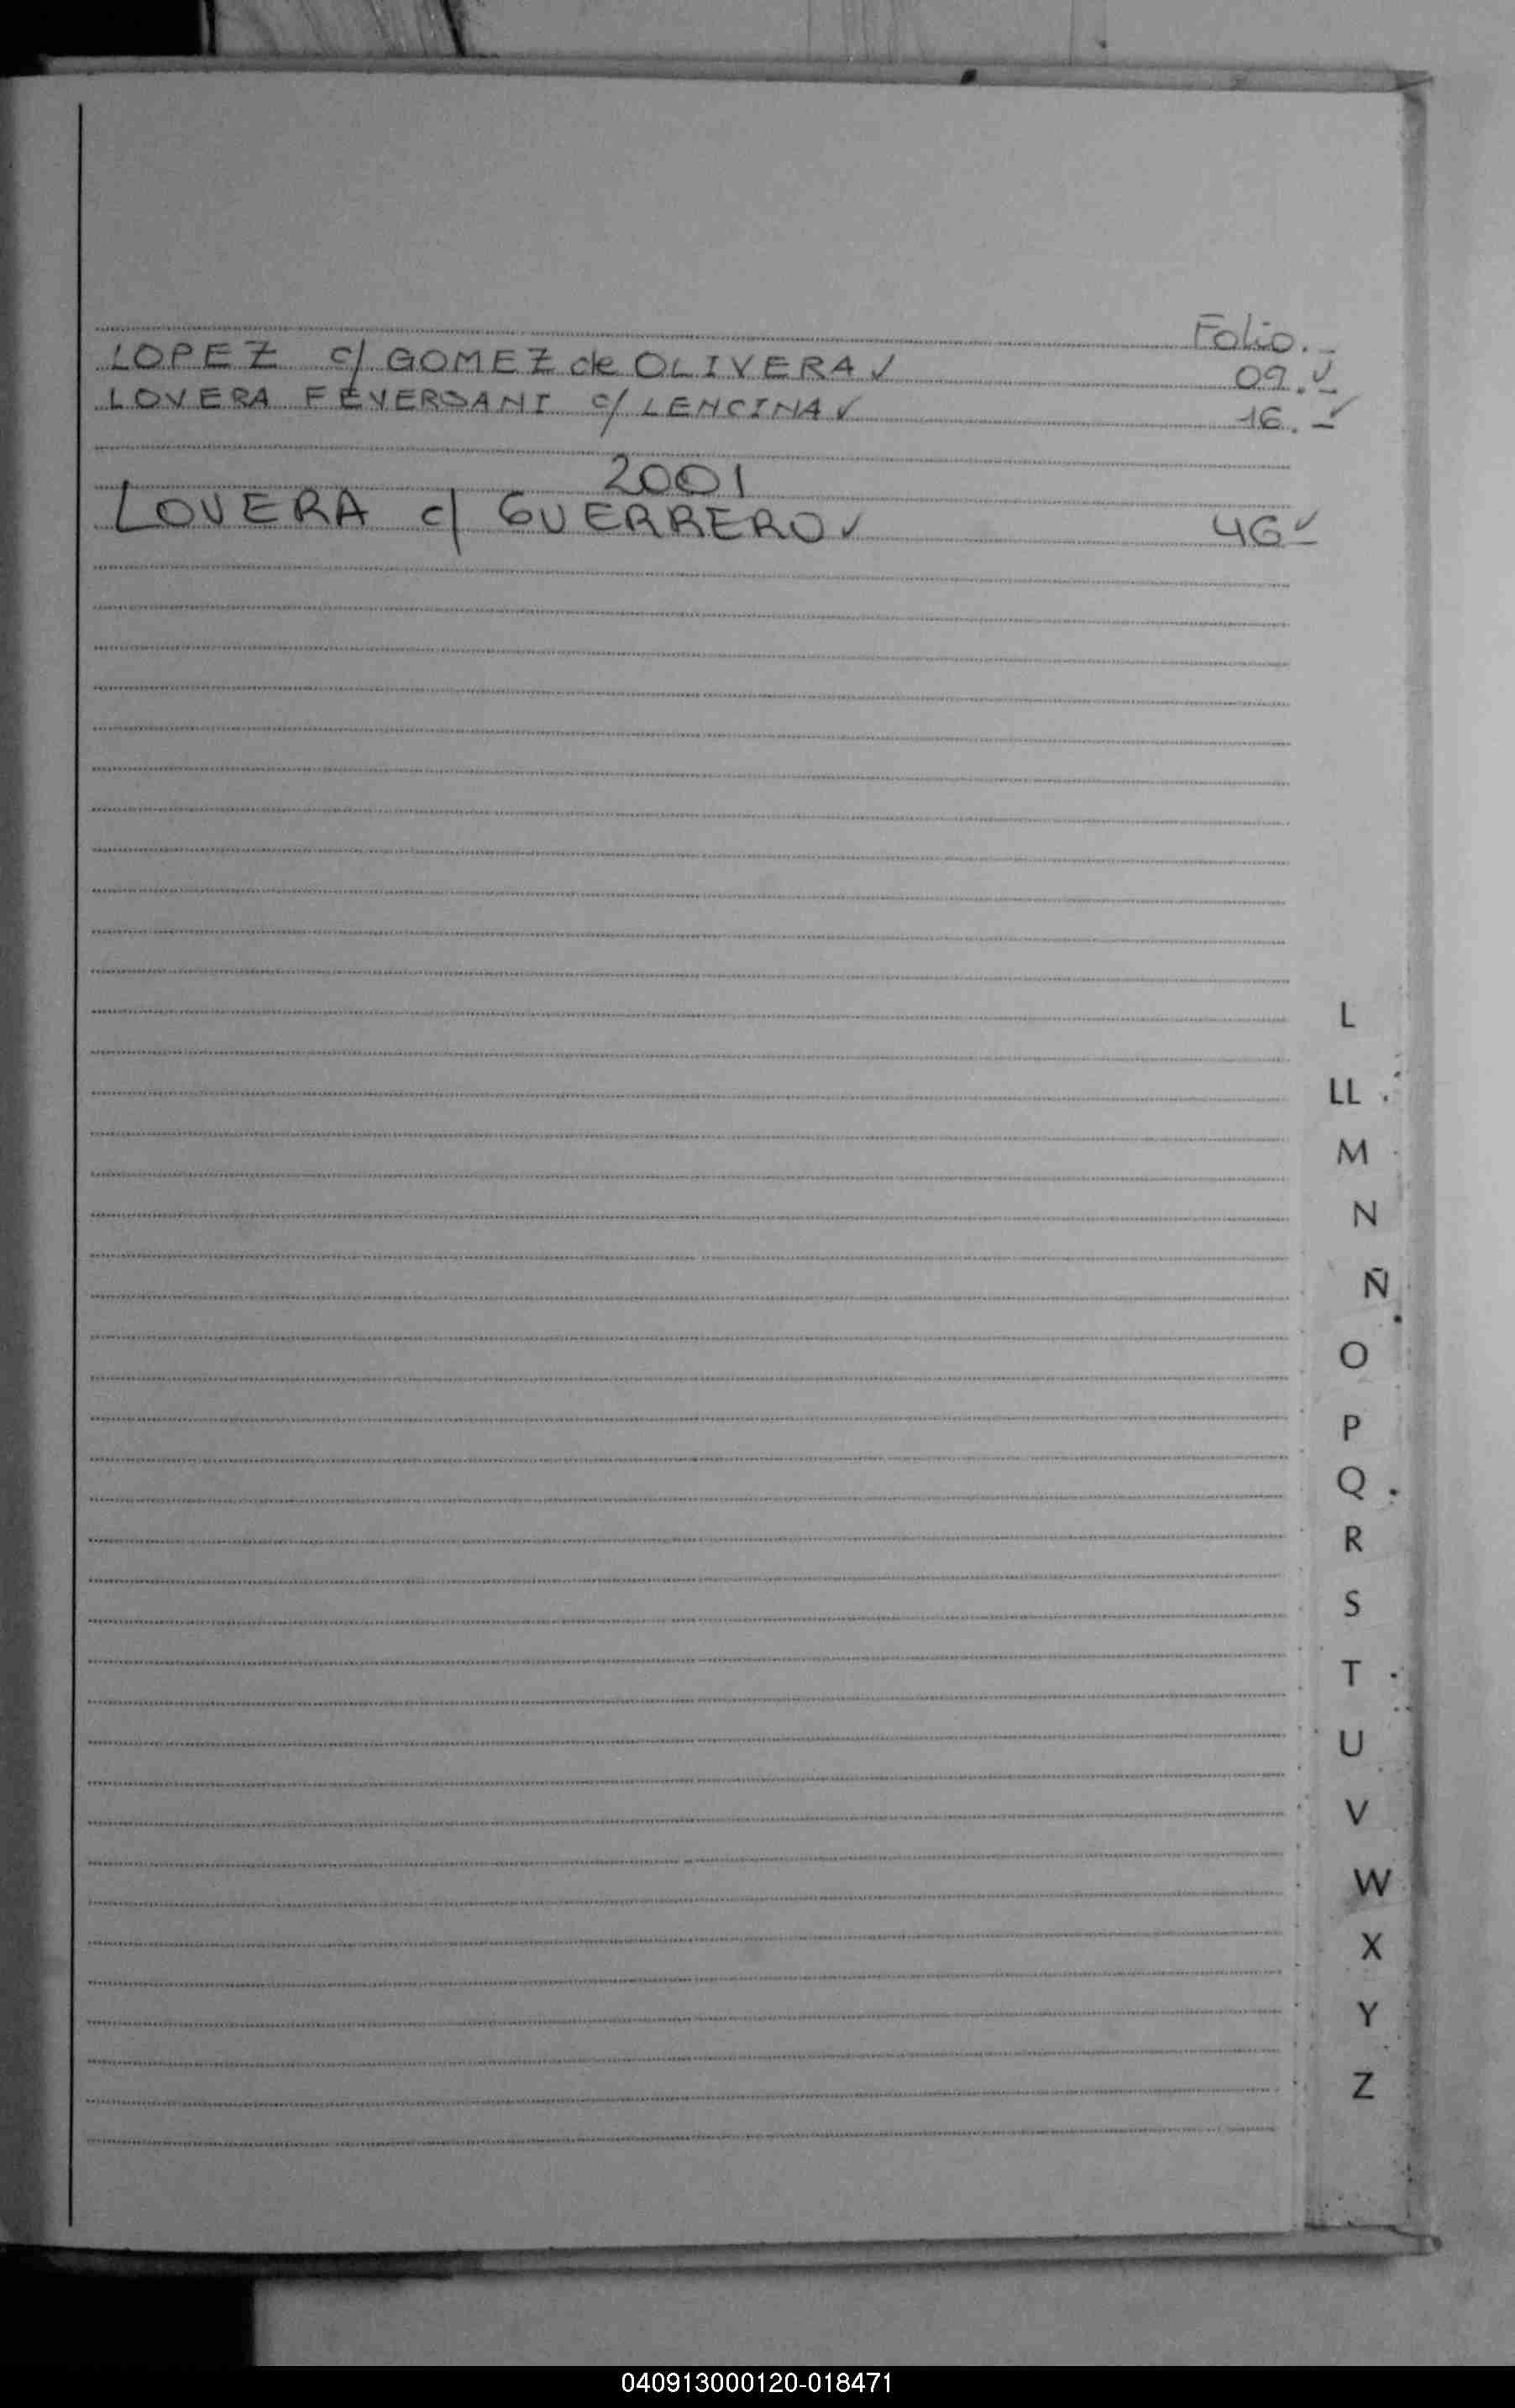 Folio.-
LOPEZ c/ GOMEZ de OLIVERA ✓ 09. ✓
LOVERA FEVERSANI c/ LENCINA ✓ 16. ✓
2001
LOVERA c/ GUERRERO ✓ 46 ✓
L
LL
M
N
Ñ
O
P
Q
R
S
T
U
V
W
X
Y
Z
040913000120-018471